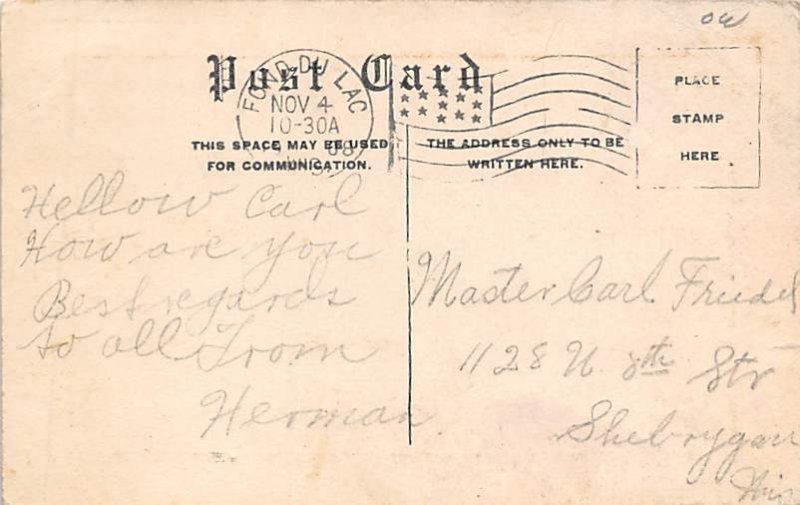 ow
Post Card
FOND DU LAC
NOV 4
10-30A
08
THIS SPACE MAY BE USED
FOR COMMUNICATION.
THE ADDRESS ONLY TO BE
WRITTEN HERE.
PLACE
STAMP
HERE
Hellow Carl
How are you
Best regards
to all From
Herman
Master Carl Friedel
1128 N 8th Str
Shebrygan
Wis